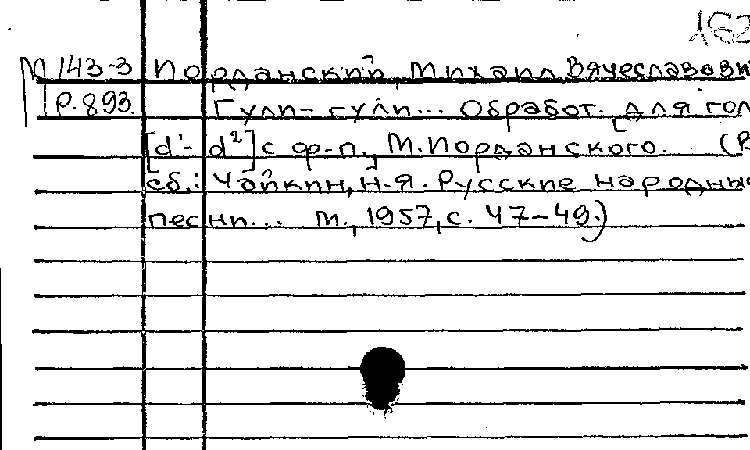 162
М 143-3 Иорданский, Михаил Вячеславови
Р.893. Гули-гули... Обработ. для гол
[d¹- d²] с ф-п., М.Иорданского. (В
сб.: Чайкин, Н.Я. Русские народны
песни... М., 1957, с. 47-49.)